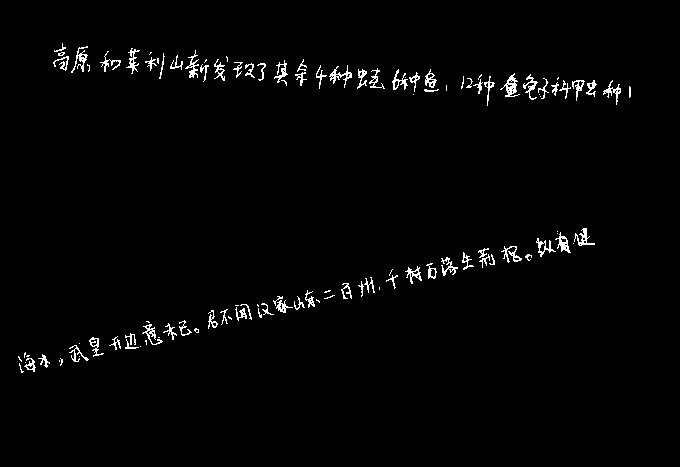 高原和莱利山新发现了其余4种蛙6种鱼，12种金龟子科甲虫种1
海水，武皇开边意未已。君不闻汉家山东二百州，千村万落生荆杞。纵有健